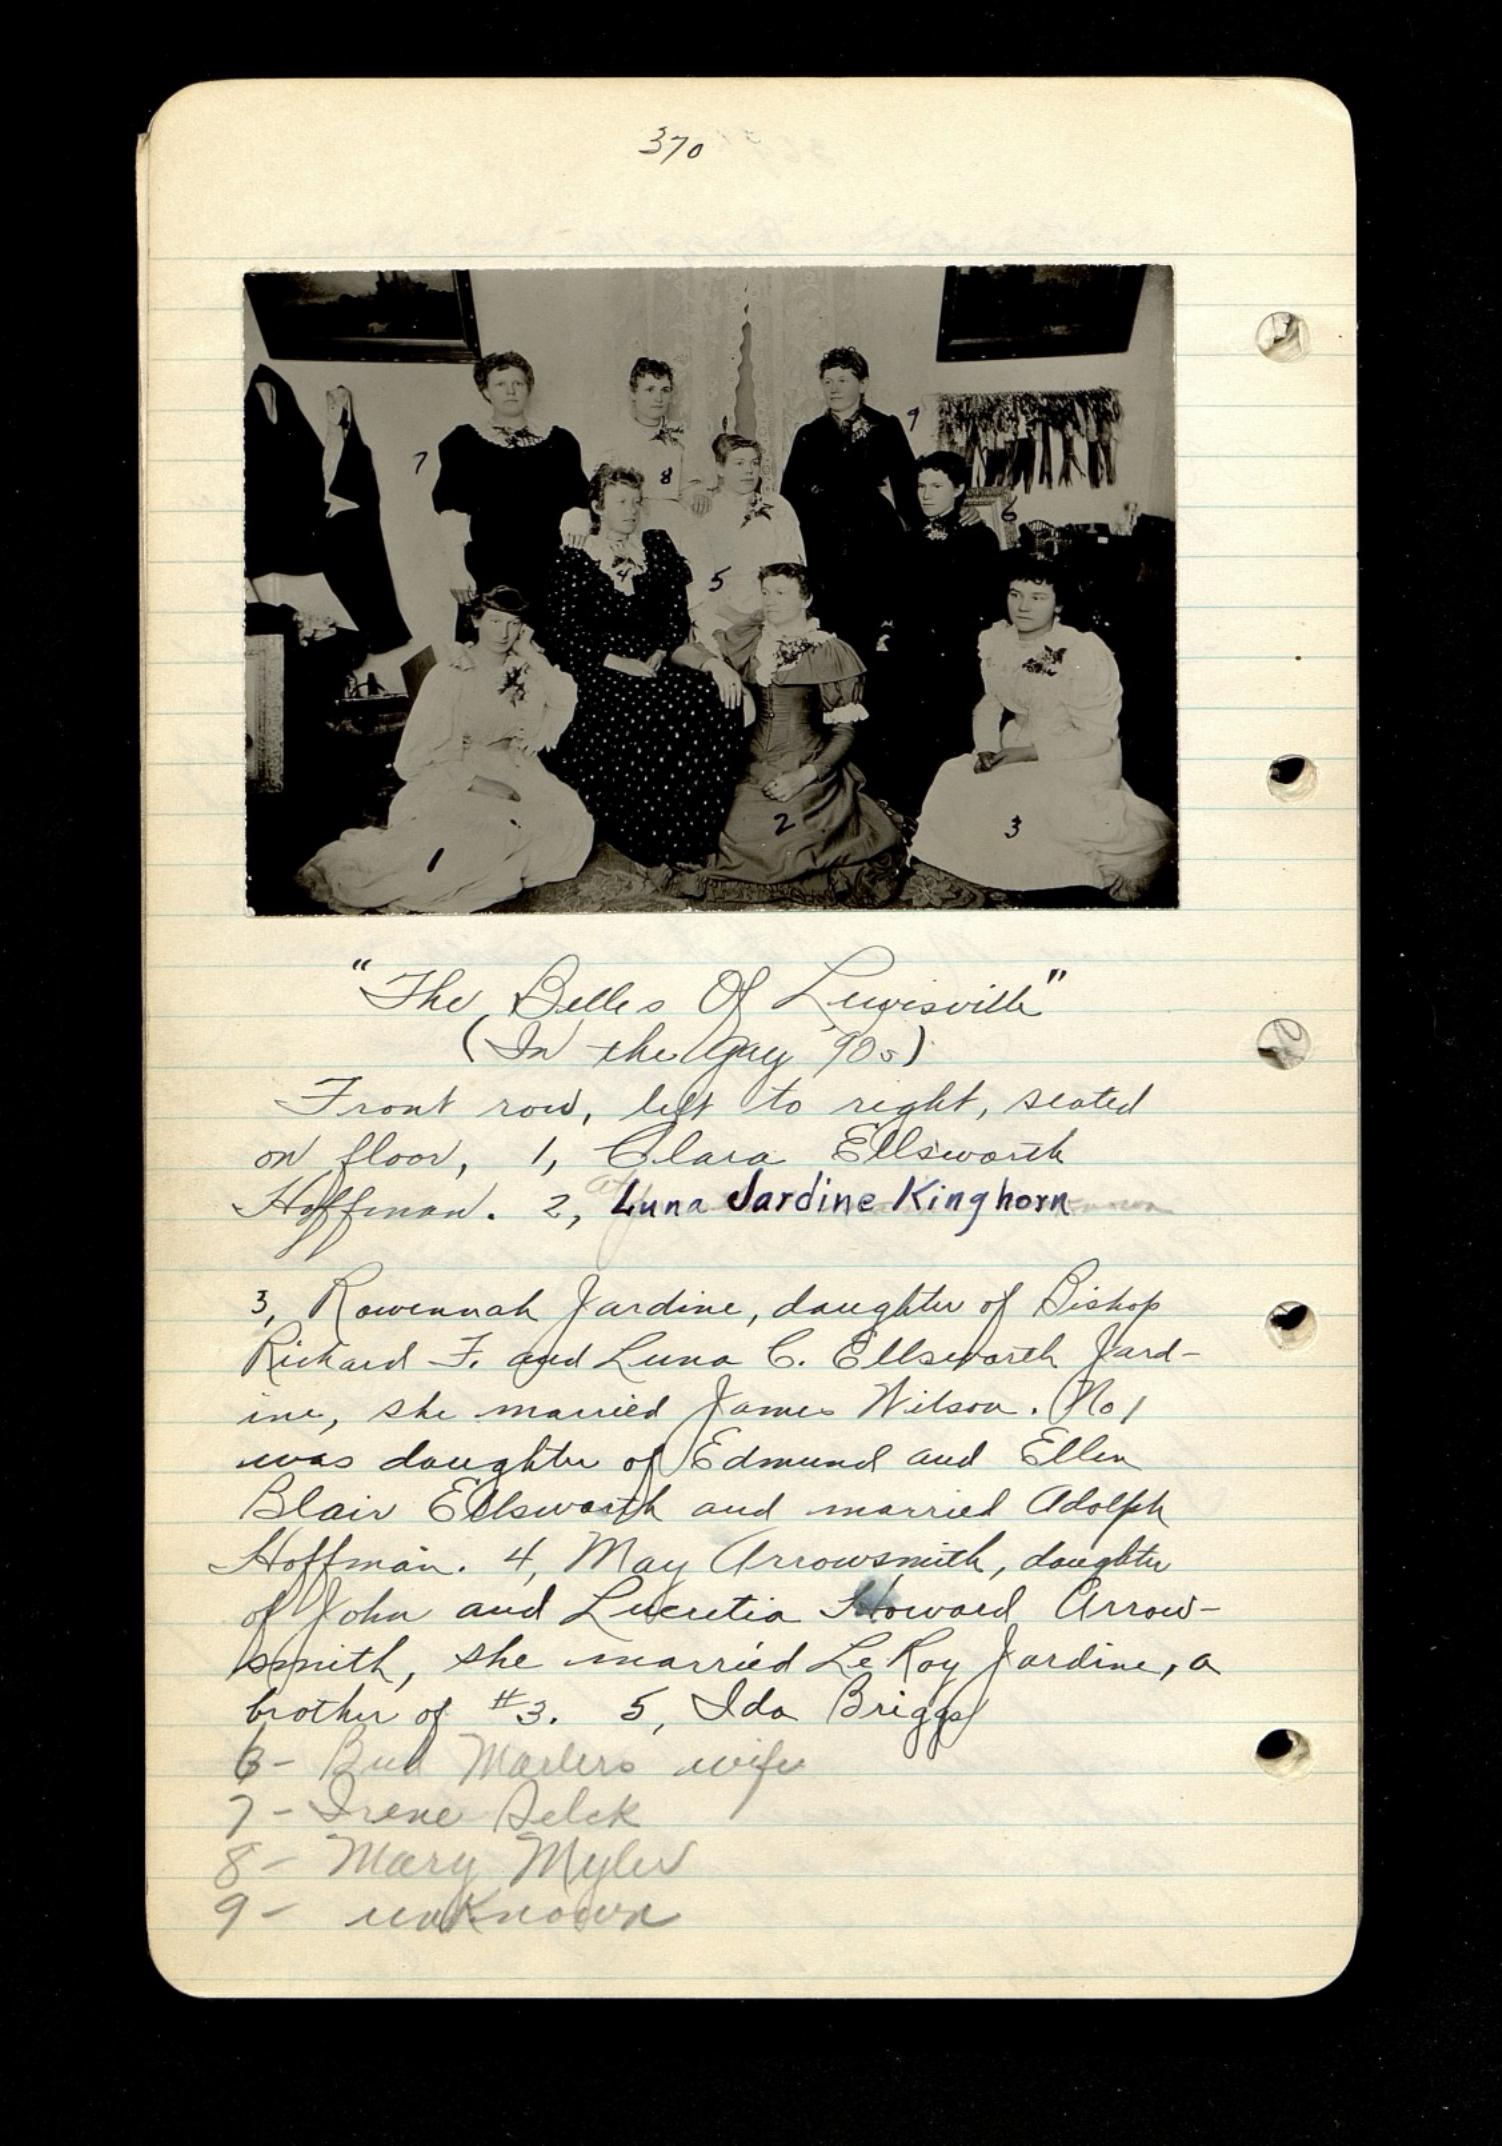 370
7
8
9
6
4
5
1
2
3
"The Belles Of Lewisville"
(In the Gay '90s)
Front row, left to right, seated
on floor, 1, Clara Ellsworth
Hoffman. 2, Luna Jardine Kinghorn
3, Rowennah Jardine, daughter of Bishop
Richard F. and Luna C. Ellsworth Jard-
ine, she married James Wilson. No 1
was daughter of Edmund and Ellen
Blair Ellsworth and married Adolph
Hoffman. 4, May Arrowsmith, daughter
of John and Lucretia Howard Arrow-
smith, she married LeRoy Jardine, a
brother of #3. 5, Ida Briggs
6- Bud Marlers wife
7- Irene Selck
8- Mary Myler
9- unknown